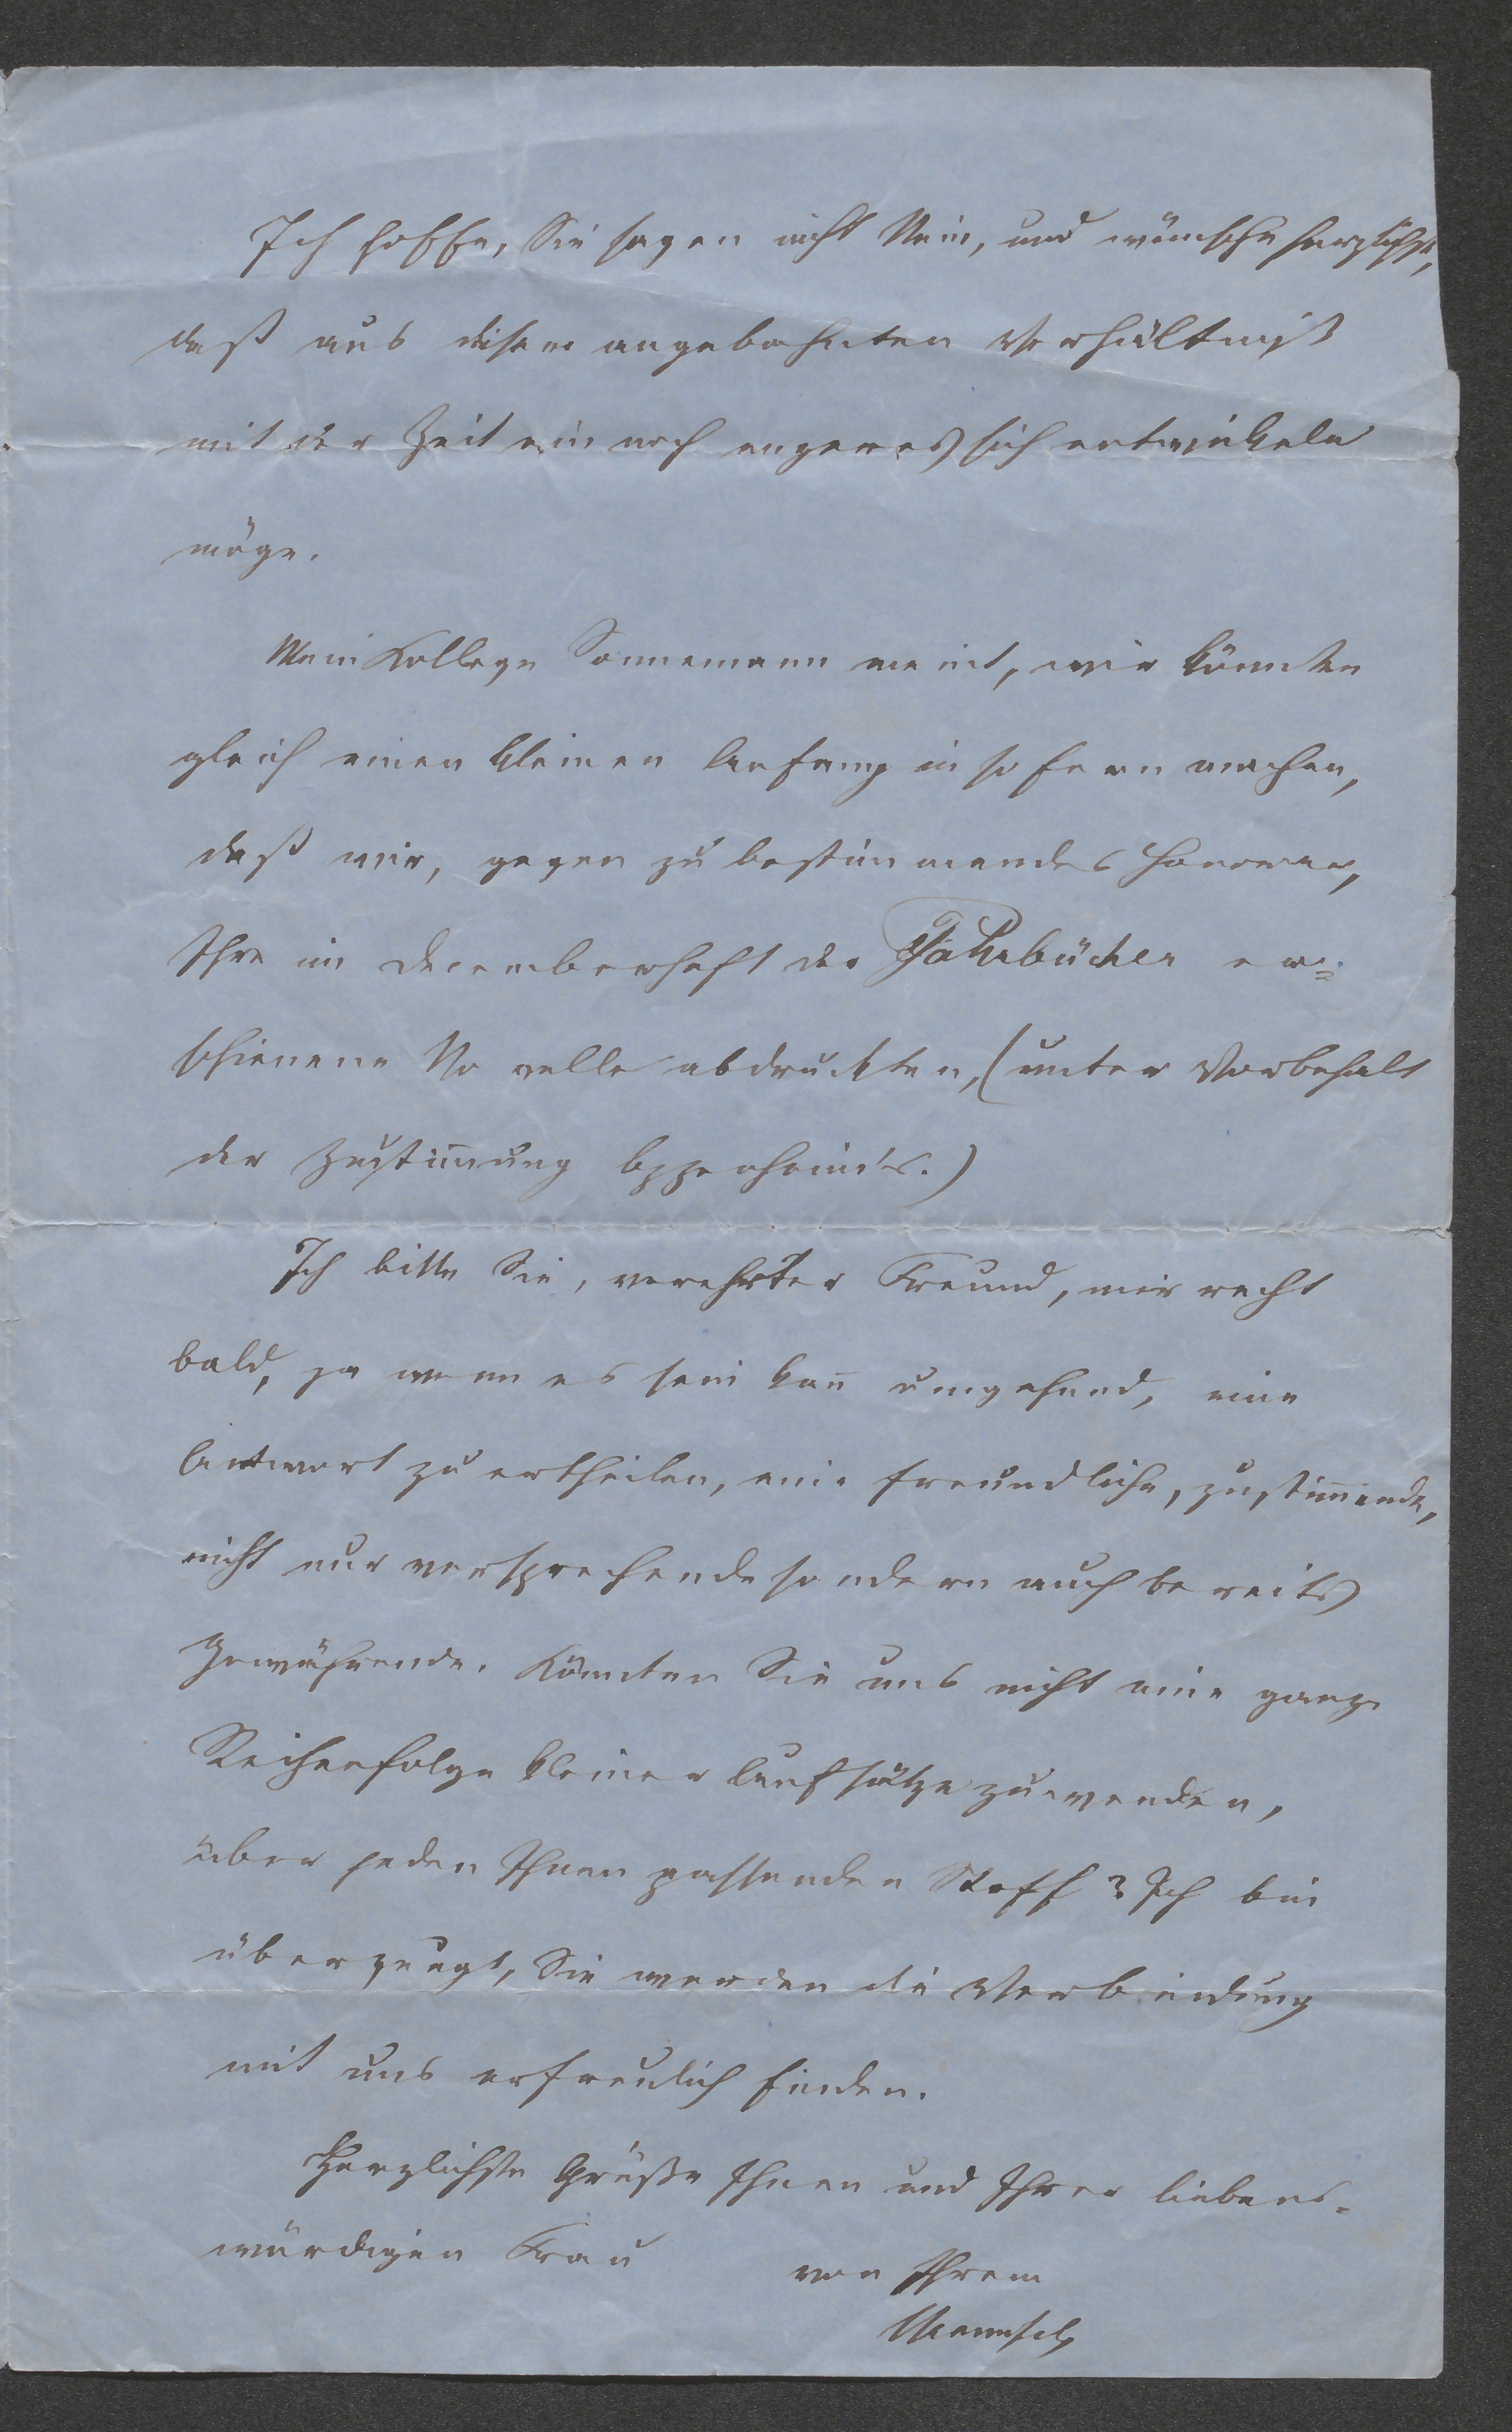 Ich hoffe, Sie sagen nicht Nein, und wünsche herzlichst,
daß aus disem angebahnten Verhältniß
mit der Zeit ein noch engeres sich entwickeln
möge.
Mein Kollege Sonnemann meint, wir könnten
gleich einen kleinen Anfang in so fern machen,
daß wir, gegen zu bestimmendes Honorar,
Ihre im Decemberheft der Jahrbücher er=
schienene Novelle abdruckten, (unter Vorbehalt
der Zustim̄ung Oppenheim's.)
Ich bitte Sie, verehrter Freund, mir recht
bald, ja wenn es sein kan̄ umgehend, eine
Antwort zu ertheilen, eine freundliche, zustim̄ende,
nicht nur versprechende sondern auch bereits
gewährende. Könnten Sie uns nicht eine ganze
Reihenfolge kleiner Aufsätze zuwenden,
über jeden Ihnen passenden Stoff? Ich bin
überzeugt, Sie werden die Verbindung
mit uns erfreulich finden.
Herzlichste Grüße Ihnen und Ihrer liebens=
würdigen Frau
von Ihrem